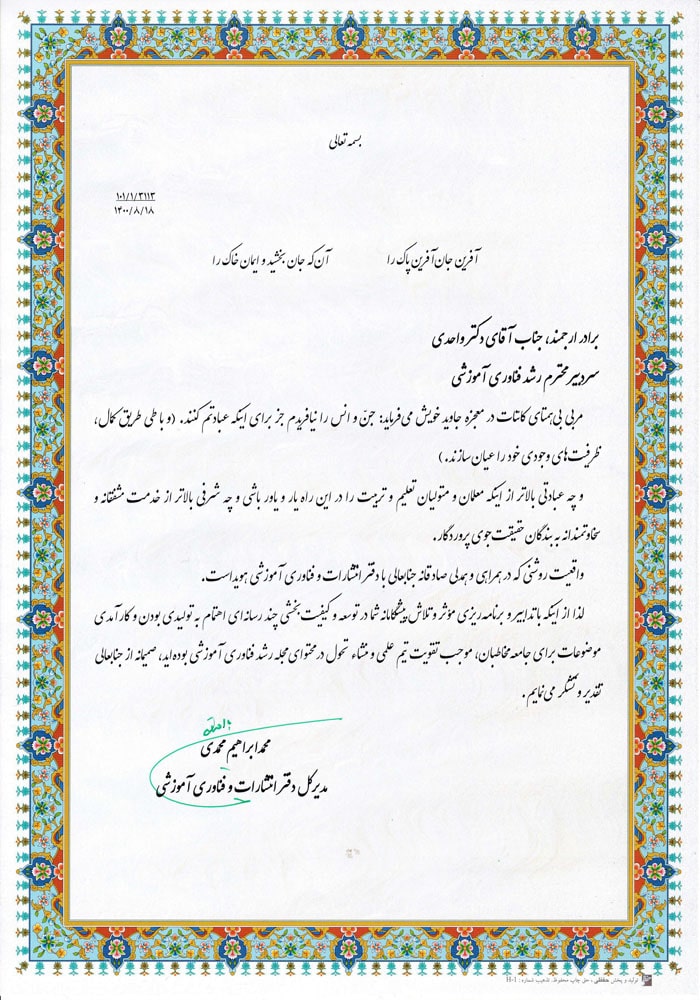 بسمه تعالی
۱۰۱/۱/۳۱۱۳
۱۴۰۰/۸/۱۸
آفرین جان‌آفرین پاک را آن که جان بخشید و ایمان خاک را
برادر ارجمند، جناب آقای دکتر واحدی
سردبیر محترم رشد فناوری آموزشی
مربی بی‌همتای کائنات در معجزه جاوید خویش می‌فرماید: جنّ و انس را نیافریدم جز برای اینکه عبادتم کنند. (و با طی طریق کمال،
ظرفیت‌های وجودی خود را عیان سازند.)
و چه عبادتی بالاتر از اینکه معلمان و متولیان تعلیم و تربیت را در این راه یار و یاور باشی و چه شرفی بالاتر از خدمت مشفقانه و
سخاوتمندانه به بندگان حقیقت جوی پروردگار.
واقعیت روشنی که در همراهی و همدلی صادقانه جنابعالی با دفتر انتشارات و فناوری آموزشی هویداست.
لذا از اینکه با تدابیر و برنامه‌ریزی مؤثر و تلاش پیشگامانه شما در توسعه و کیفیت بخشی چند رسانه‌ای اهتمام به تولیدی بودن و کارآمدی
موضوعات برای جامعه مخاطبان، موجب تقویت تیم علمی و منشاء تحول در محتوای مجله رشد فناوری آموزشی بوده‌اید، صمیمانه از جنابعالی
تقدیر و تشکر می‌نمایم.
محمدابراهیم محمدی
مدیرکل دفتر انتشارات و فناوری آموزشی
تولید و پخش حفظی ، حق چاپ محفوظ. تذهیب شماره : H-1